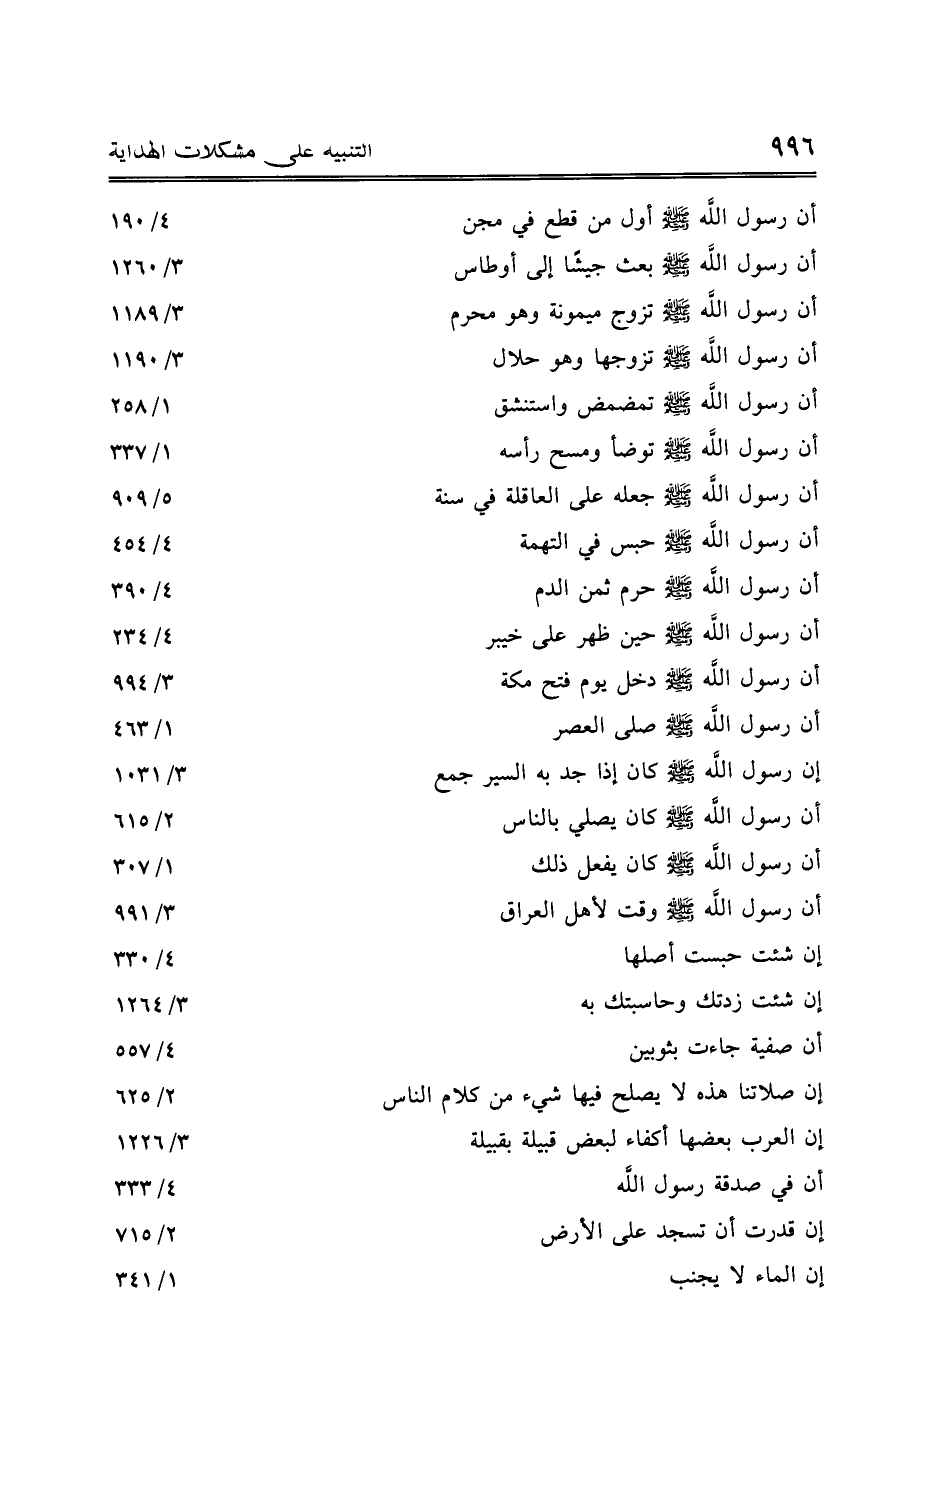 ٩٩٦ التنبيه على مشكلات الهداية
أن رسول اللَّه ﷺ أول من قطع في مجن ٤/ ١٩٠
أن رسول اللَّه ﷺ بعث جيشًا إلى أوطاس ٣/ ١٢٦٠
أن رسول اللَّه ﷺ تزوج ميمونة وهو محرم ٣/ ١١٨٩
أن رسول اللَّه ﷺ تزوجها وهو حلال ٣/ ١١٩٠
أن رسول اللَّه ﷺ تمضمض واستنشق ١/ ٢٥٨
أن رسول اللَّه ﷺ توضأ ومسح رأسه ١/ ٣٣٧
أن رسول اللَّه ﷺ جعله على العاقلة في سنة ٥/ ٩٠٩
أن رسول اللَّه ﷺ حبس في التهمة ٤/ ٤٥٤
أن رسول اللَّه ﷺ حرم ثمن الدم ٤/ ٣٩٠
أن رسول اللَّه ﷺ حين ظهر على خيبر ٤/ ٢٣٤
أن رسول اللَّه ﷺ دخل يوم فتح مكة ٣/ ٩٩٤
أن رسول اللَّه ﷺ صلى العصر ١/ ٤٦٣
إن رسول اللَّه ﷺ كان إذا جد به السير جمع ٣/ ١٠٣١
أن رسول اللَّه ﷺ كان يصلي بالناس ٢/ ٦١٥
أن رسول اللَّه ﷺ كان يفعل ذلك ١/ ٣٠٧
أن رسول اللَّه ﷺ وقت لأهل العراق ٣/ ٩٩١
إن شئت حبست أصلها ٤/ ٣٣٠
إن شئت زدتك وحاسبتك به ٣/ ١٢٦٤
أن صفية جاءت بثوبين ٤/ ٥٥٧
إن صلاتنا هذه لا يصلح فيها شيء من كلام الناس ٢/ ٦٢٥
إن العرب بعضها أكفاء لبعض قبيلة بقبيلة ٣/ ١٢٢٦
أن في صدقة رسول اللَّه ٤/ ٣٣٣
إن قدرت أن تسجد على الأرض ٢/ ٧١٥
إن الماء لا يجنب ١/ ٣٤١